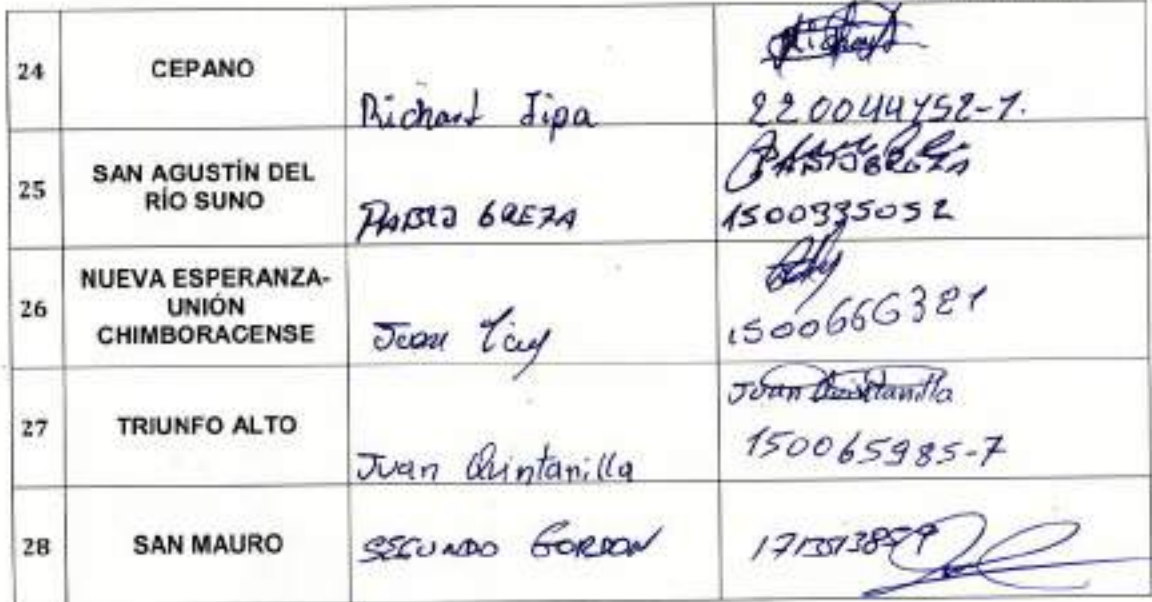 24 CEPANO Richard Tipa 220044752-1.
25 SAN AGUSTÍN DEL RÍO SUNO PABLO GREZA 1500935052
26 NUEVA ESPERANZA-UNIÓN CHIMBORACENSE Juan 1500666321
27 TRIUNFO ALTO Juan Quintanilla Juan Quintanilla 150065985-7
28 SAN MAURO SEGUNDO GORDON